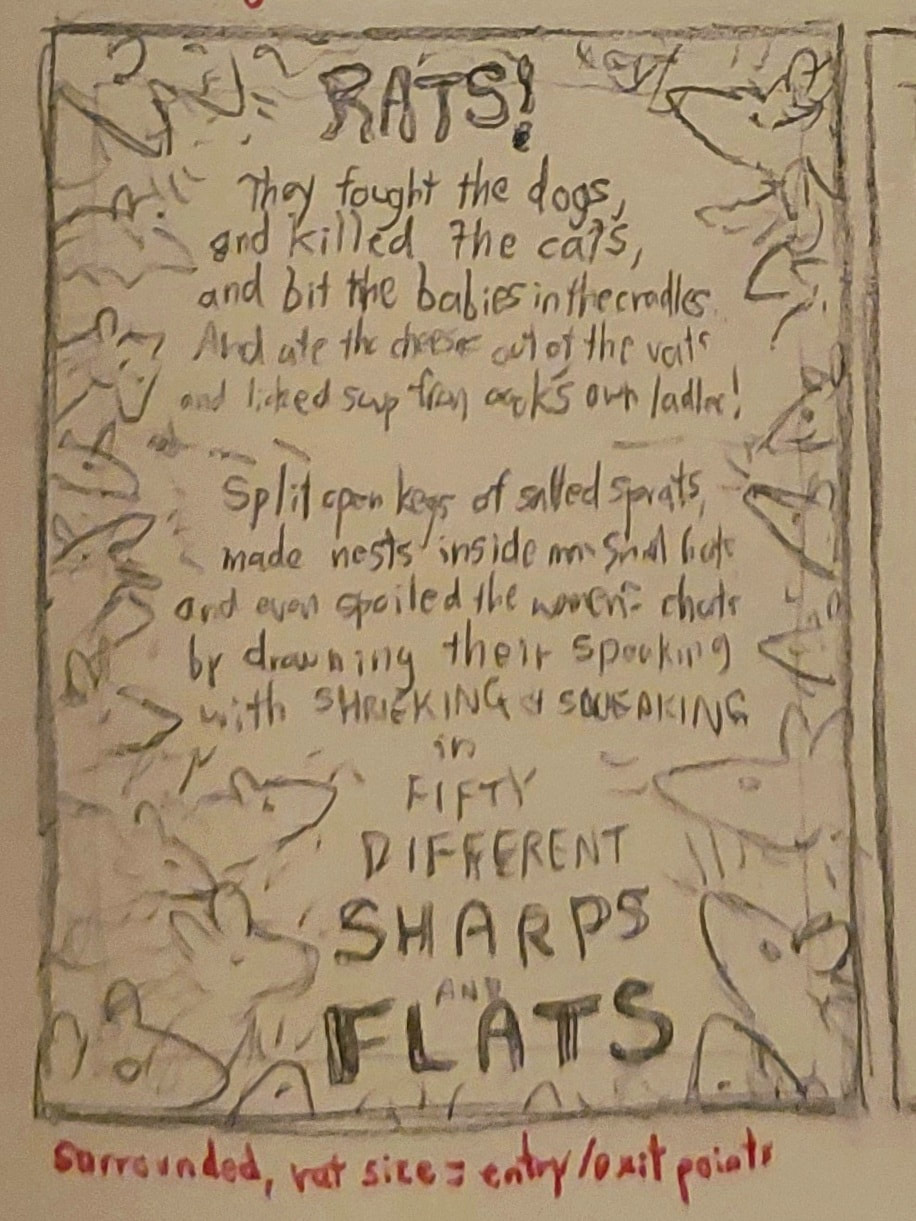 RATS!
They fought the dogs,
and killed the cats,
and bit the babies in the cradles
And ate the cheese out of the vats
and licked soup from cook's own ladles!
Split open kegs of salted sprats,
made nests inside
and even spoiled the women's chats
by drowning their speaking
with SHRIEKING & SQUEAKING
in
FIFTY
DIFFERENT
SHARPS
AND
FLATS
surrounded, rat size = entry/exit points